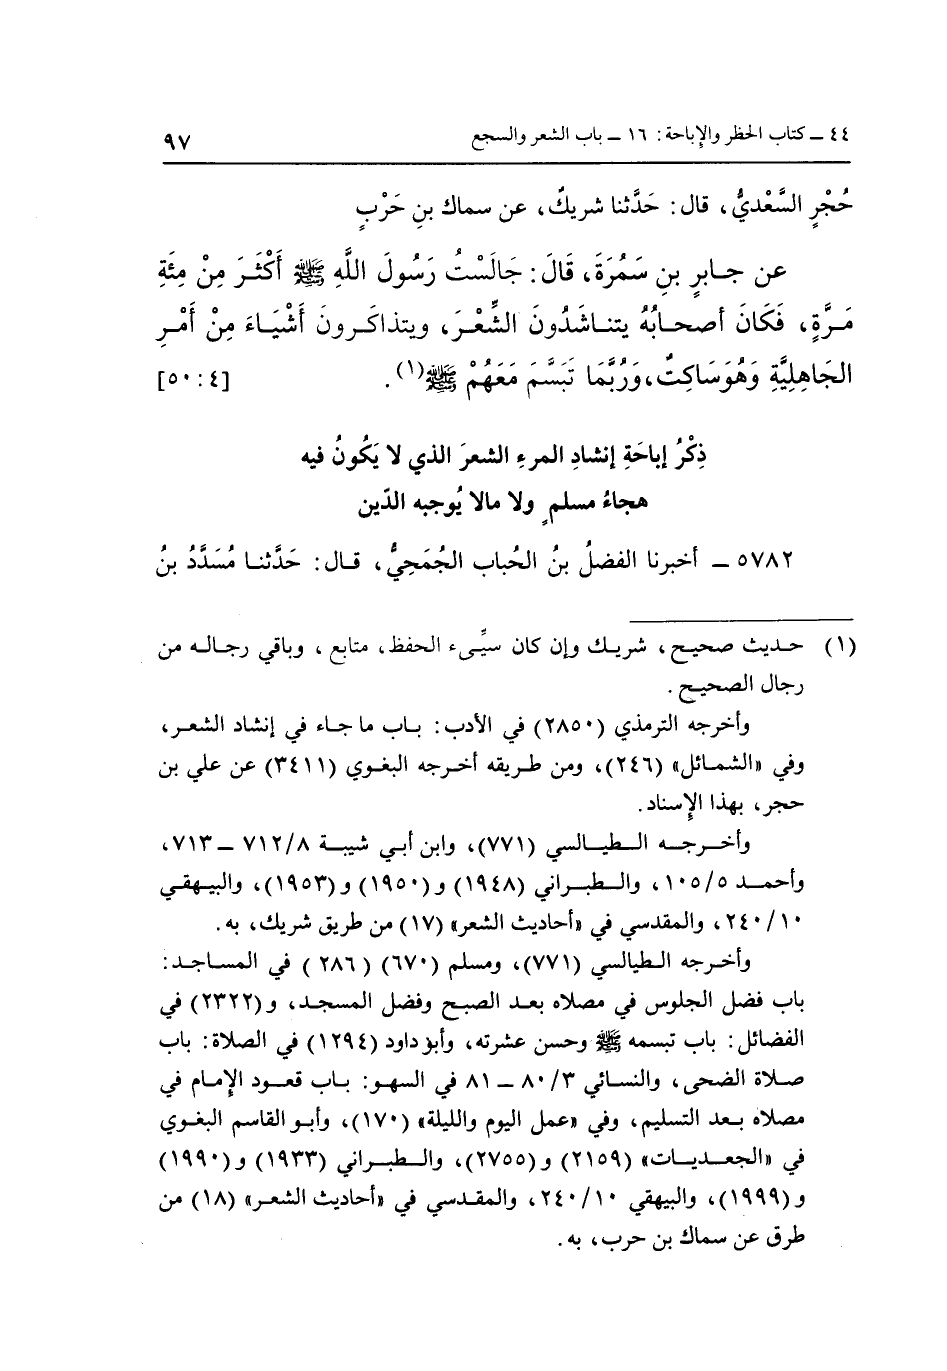 ٤٤ ــ كتاب الحظر والإباحة: ١٦ ــ باب الشعر والسجع ٩٧
حُجْرٍ السَّعْديُّ، قال: حَدَّثنا شريكٌ، عن سماك بنِ حَرْبٍ
عن جابرٍ بنِ سَمُرَةَ، قَالَ: جَالَسْتُ رَسُولَ اللَّهِ ﷺ أَكْثَرَ مِنْ مِئَةِ
مَرَّةٍ، فَكَانَ أصحابُهُ يتناشَدُونَ الشِّعْرَ، ويتذاكرونَ أَشْيَاءَ مِنْ أَمْرِ
الجَاهِلِيَّةِ وَهُوَ سَاكِتٌ، وَرُبَّمَا تَبَسَّمَ مَعَهُمْ ﷺ(١). [٤: ٥٠]
ذِكْرُ إباحَةِ إنشادِ المرءِ الشعرَ الذي لا يَكُونُ فيه
هجاءُ مسلمٍ ولا مالا يُوجبه الدّين
٥٧٨٢ ــ أخبرنا الفضلُ بنُ الحُباب الجُمَحِيُّ، قال: حَدَّثنا مُسَدَّدُ بنُ
(١) حديث صحيح، شريك وإن كان سيِّىء الحفظ، متابع، وباقي رجاله من
رجال الصحيح.
وأخرجه الترمذي (٢٨٥٠) في الأدب: باب ما جاء في إنشاد الشعر،
وفي «الشمائل» (٢٤٦)، ومن طريقه أخرجه البغوي (٣٤١١) عن علي بن
حجر، بهذا الإسناد.
وأخرجه الطيالسي (٧٧١)، وابن أبي شيبة ٧١٢/٨ ــ ٧١٣،
وأحمد ١٠٥/٥، والطبراني (١٩٤٨) و(١٩٥٠) و(١٩٥٣)، والبيهقي
٢٤٠/١٠، والمقدسي في «أحاديث الشعر» (١٧) من طريق شريك، به.
وأخرجه الطيالسي (٧٧١)، ومسلم (٦٧٠) (٢٨٦) في المساجد:
باب فضل الجلوس في مصلاه بعد الصبح وفضل المسجد، و(٢٣٢٢) في
الفضائل: باب تبسمه ﷺ وحسن عشرته، وأبو داود (١٢٩٤) في الصلاة: باب
صلاة الضحى، والنسائي ٨٠/٣ ــ ٨١ في السهو: باب قعود الإمام في
مصلاه بعد التسليم، وفي «عمل اليوم والليلة» (١٧٠)، وأبو القاسم البغوي
في «الجعديات» (٢١٥٩) و(٢٧٥٥)، والطبراني (١٩٣٣) و(١٩٩٠)
و(١٩٩٩)، والبيهقي ٢٤٠/١٠، والمقدسي في «أحاديث الشعر» (١٨) من
طرق عن سماك بن حرب، به.